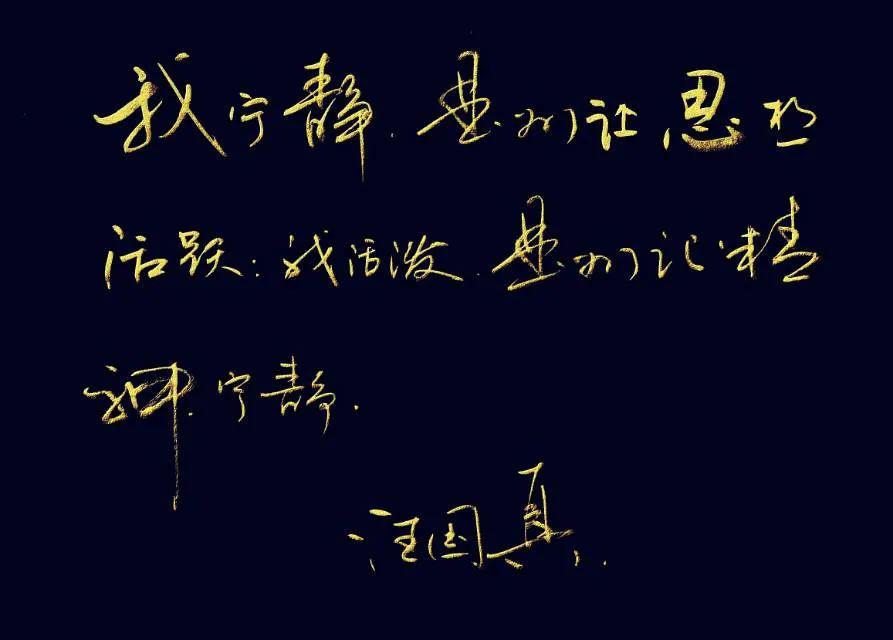 我宁静,是为了让思想
活跃;我活泼,是为了让精
神宁静.
汪国真